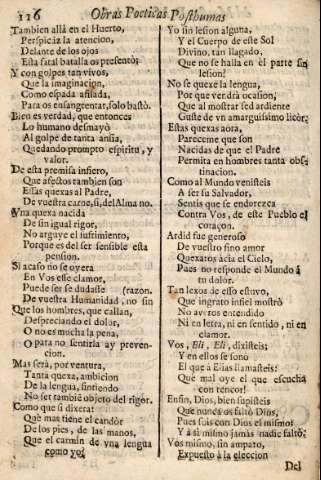 116 Obras Poeticas Posthumas
Tambien allà en el Huerto,
Perspicàz la atencion,
Delante de los ojos
Esta fatal batalla os presentò;
Y con golpes tan vivos,
Que la imaginacion,
Como espada afilada,
Para os ensangrentar, solo bastò.
Bien es verdad, que entonces
Lo humano desmayò
Al golpe de tanta ansia,
Quedando prompto espiritu, y
valor.
De esta premisa infiero,
Que afectos tambien son
Essas quexas al Padre,
De vuestra carne, si, del Alma no.
Vna quexa nacida
De sin igual rigor,
No arguye el sufrimiento,
Porque es del ser sensible esta
pension.
Si acaso no se oyera
En Vos esse clamor,
Puede ser se dudasse (razon.
De vuestra Humanidad, no sin
Que los hombres, que callan,
Despreciando el dolor,
O no es mucha la pena,
O para no sentirla ay preven-
cion.
Mas serà, por ventura,
Tanta quexa, ambicion
De la lengua, sintiendo
No ser tambiē objeto del rigor.
Como que si dixera:
Què mas tiene el candòr
De los pies, de las manos,
Que el carmin de vna lengua
como yo?
Yo sin lesion alguna,
Y el Cuerpo de este Sol
Divino, tan llagado,
Que no se halla en el parte sin
lesion?
No se quexe la lengua,
Por que verdrà ocasion,
Que al mostrar sed ardiente
Guste de vn amarguissimo licòr;
Estas quexas aora,
Pareceme que son
Nacidas de que el Padre
Permita en hombres tanta obs-
tinacion.
Como al Mundo venisteis
A ser su Salvador,
Sentis que se endorezca
Contra Vos, de este Pueblo el
coraçon.
Ardid fue generoso
De vuestro fino amor
Quexaros azia el Cielo,
Pues no responde el Mundo à
tu dolor.
Tan lexos de esso estuvo,
Que ingrato infiel mostrò
No averos entendido
Ni en letra, ni en sentido, ni en
clamor.
Vos, Eli, Eli, dixisteis;
Y en ellos se sonò
El que à Elias llamasteis:
Què mal oye el que escucha
con rencor!
Enfin, Dios, bien supisteis
Que nunca os faltò Dios,
Pues sois con Dios el mismo,
Y à si mismo jamàs nadie faltò.
Vos mismo, sin amparo,
Expuesto à la eleccion
Del